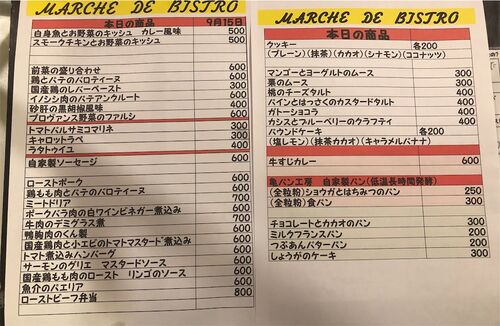 MARCHE DE BISTRO
本日の商品 9月15日
白身魚とお野菜のキッシュ カレー風味 500
スモークチキンとお野菜のキッシュ 500
前菜の盛り合わせ 600
鶏とパテのバロティーヌ 300
国産鶏のレバーペースト 300
イノシシ肉のパテアンクルート 600
砂肝の黒胡椒風味 400
プロヴァンス野菜のファルシ 600
トマトバルサミコマリネ 300
キャロットラペ 300
ラタトゥイユ 400
自家製ソーセージ 600
ローストポーク 600
鶏もも肉とパテのバロティーヌ 600
ミートドリア 600
ポークバラ肉の白ワインビネガー煮込み 700
牛肉のデミグラス煮 700
鴨胸肉のくん製 600
国産鶏肉と小エビのトマトマスタード煮込み 600
トマト煮込みハンバーグ 600
サーモンのグリエ マスタードソース 600
国産鶏もも肉のロースト リンゴのソース 600
魚介のパエリア 600
ローストビーフ弁当 800
MARCHE DE BISTRO
本日の商品
ウッキー 各200
(プレーン) (抹茶) (カカオ) (シナモン) (ココナッツ)
マンゴーとヨーグルトのムース 300
栗のムース 300
桃のチーズタルト 400
パインとはっさくのカスタードタルト 400
ガトーショコラ 400
カシスとブルーベリーのクラフティ 400
パウンドケーキ 各200
(塩レモン) (抹茶カカオ) (キャラメルバナナ)
牛すじカレー 600
亀パン工房 自家製パン(低温長時間発酵)
(全粒粉)ショウガとはちみつのパン 250
(全粒粉)食パン 300
チョコレートとカカオのパン 300
ミルクフランスパン 200
つぶあんバターパン 200
しょうがのケーキ 300